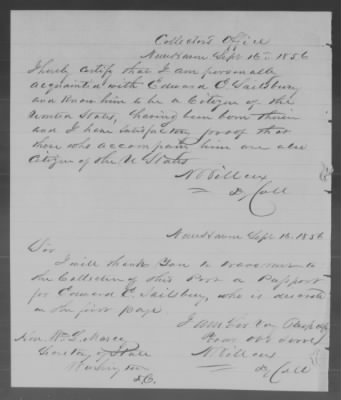 Collector's Office
New Haven Sept 16th 1856
I hereby certify that I am personally
acquainted with Edward E. Sailsbury
and know him to be a Citizen of the
United States, having been born therein
and I have satisfactory proof that
those who accompany him are also
Citizen of the U States
N Willcox
Dy Coll
New Haven Sept 16. 1856
Sir
I will thank you to transmit to
the Collector of this Port a Passport
for Edward E. Sailsbury, who is described
in the first page
I am Sir Very Respy
Your obt servt
N Willcox
Dy Coll
Hon. Wm L. Marcy
Secretary of State
Washington
D.C.